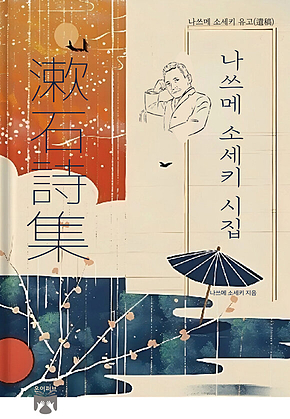 나쓰메 소세키 유고(遺稿)
漱石詩集
나쓰메 소세키 시집
나쓰메 소세키 지음